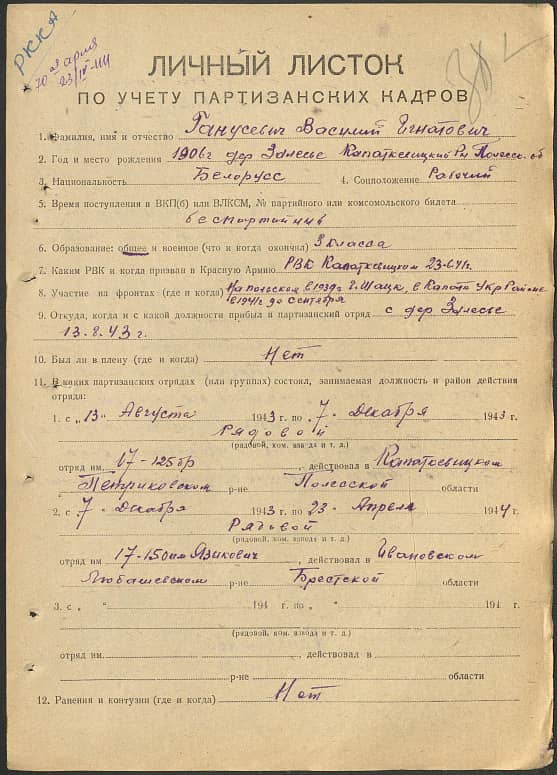 РККА
70 я Армия
23/IV-44
ЛИЧНЫЙ ЛИСТОК
ПО УЧЕТУ ПАРТИЗАНСКИХ КАДРОВ
1. Фамилия, имя и отчество Ганусевич Василий Игнатович
2. Год и место рождения 1906г дер Залесье Капаткевицкий Рн Полесск. об
3. Национальность Белорусс 4. Соцположение Рабочий
5. Время поступления в ВКП(б) или ВЛКСМ, № партийного или комсомольского билета
беспортийнив
6. Образование: общее и военное (что и когда окончил) 3 класса
7. Каким РВК и когда призван в Красную Армию РВК Капаткевицком 23-6.41г.
8. Участие на фронтах (где и когда) На польском в 1939г г. Шацк, в Капатк Укр Районе
в 1941г до сентября
9. Откуда, когда и с какой должности прибыл в партизанский отряд с дер Залесье
13.8.43г.
10. Был ли в плену (где и когда) Нет
11. В каких партизанских отрядах (или группах) состоял, занимаемая должность и район действия
отряда:
1. с „13" Августа 1943 г. по 7 - Декабря 1943 г.
Рядовой
(рядовой, ком. взвода и т. д.)
отряд им. 17-125бр, действовал в Капаткевицком
Петриковском р-не Полесской области
2. с 7 - Декабря 1943 г. по 23 - Апреля 1944 г.
Рядьвой
(рядовой, ком. взвода и т. д.)
отряд им 17-150им Языкович, действовал в Ивановском
Любашевском р-не Брестской области
3. с „ " 194 г. по „ " 194 г.
(рядовой, ком. взвода и т. д.)
отряд им., действовал в
р-не области
12. Ранения и контузии (где и когда) Нет